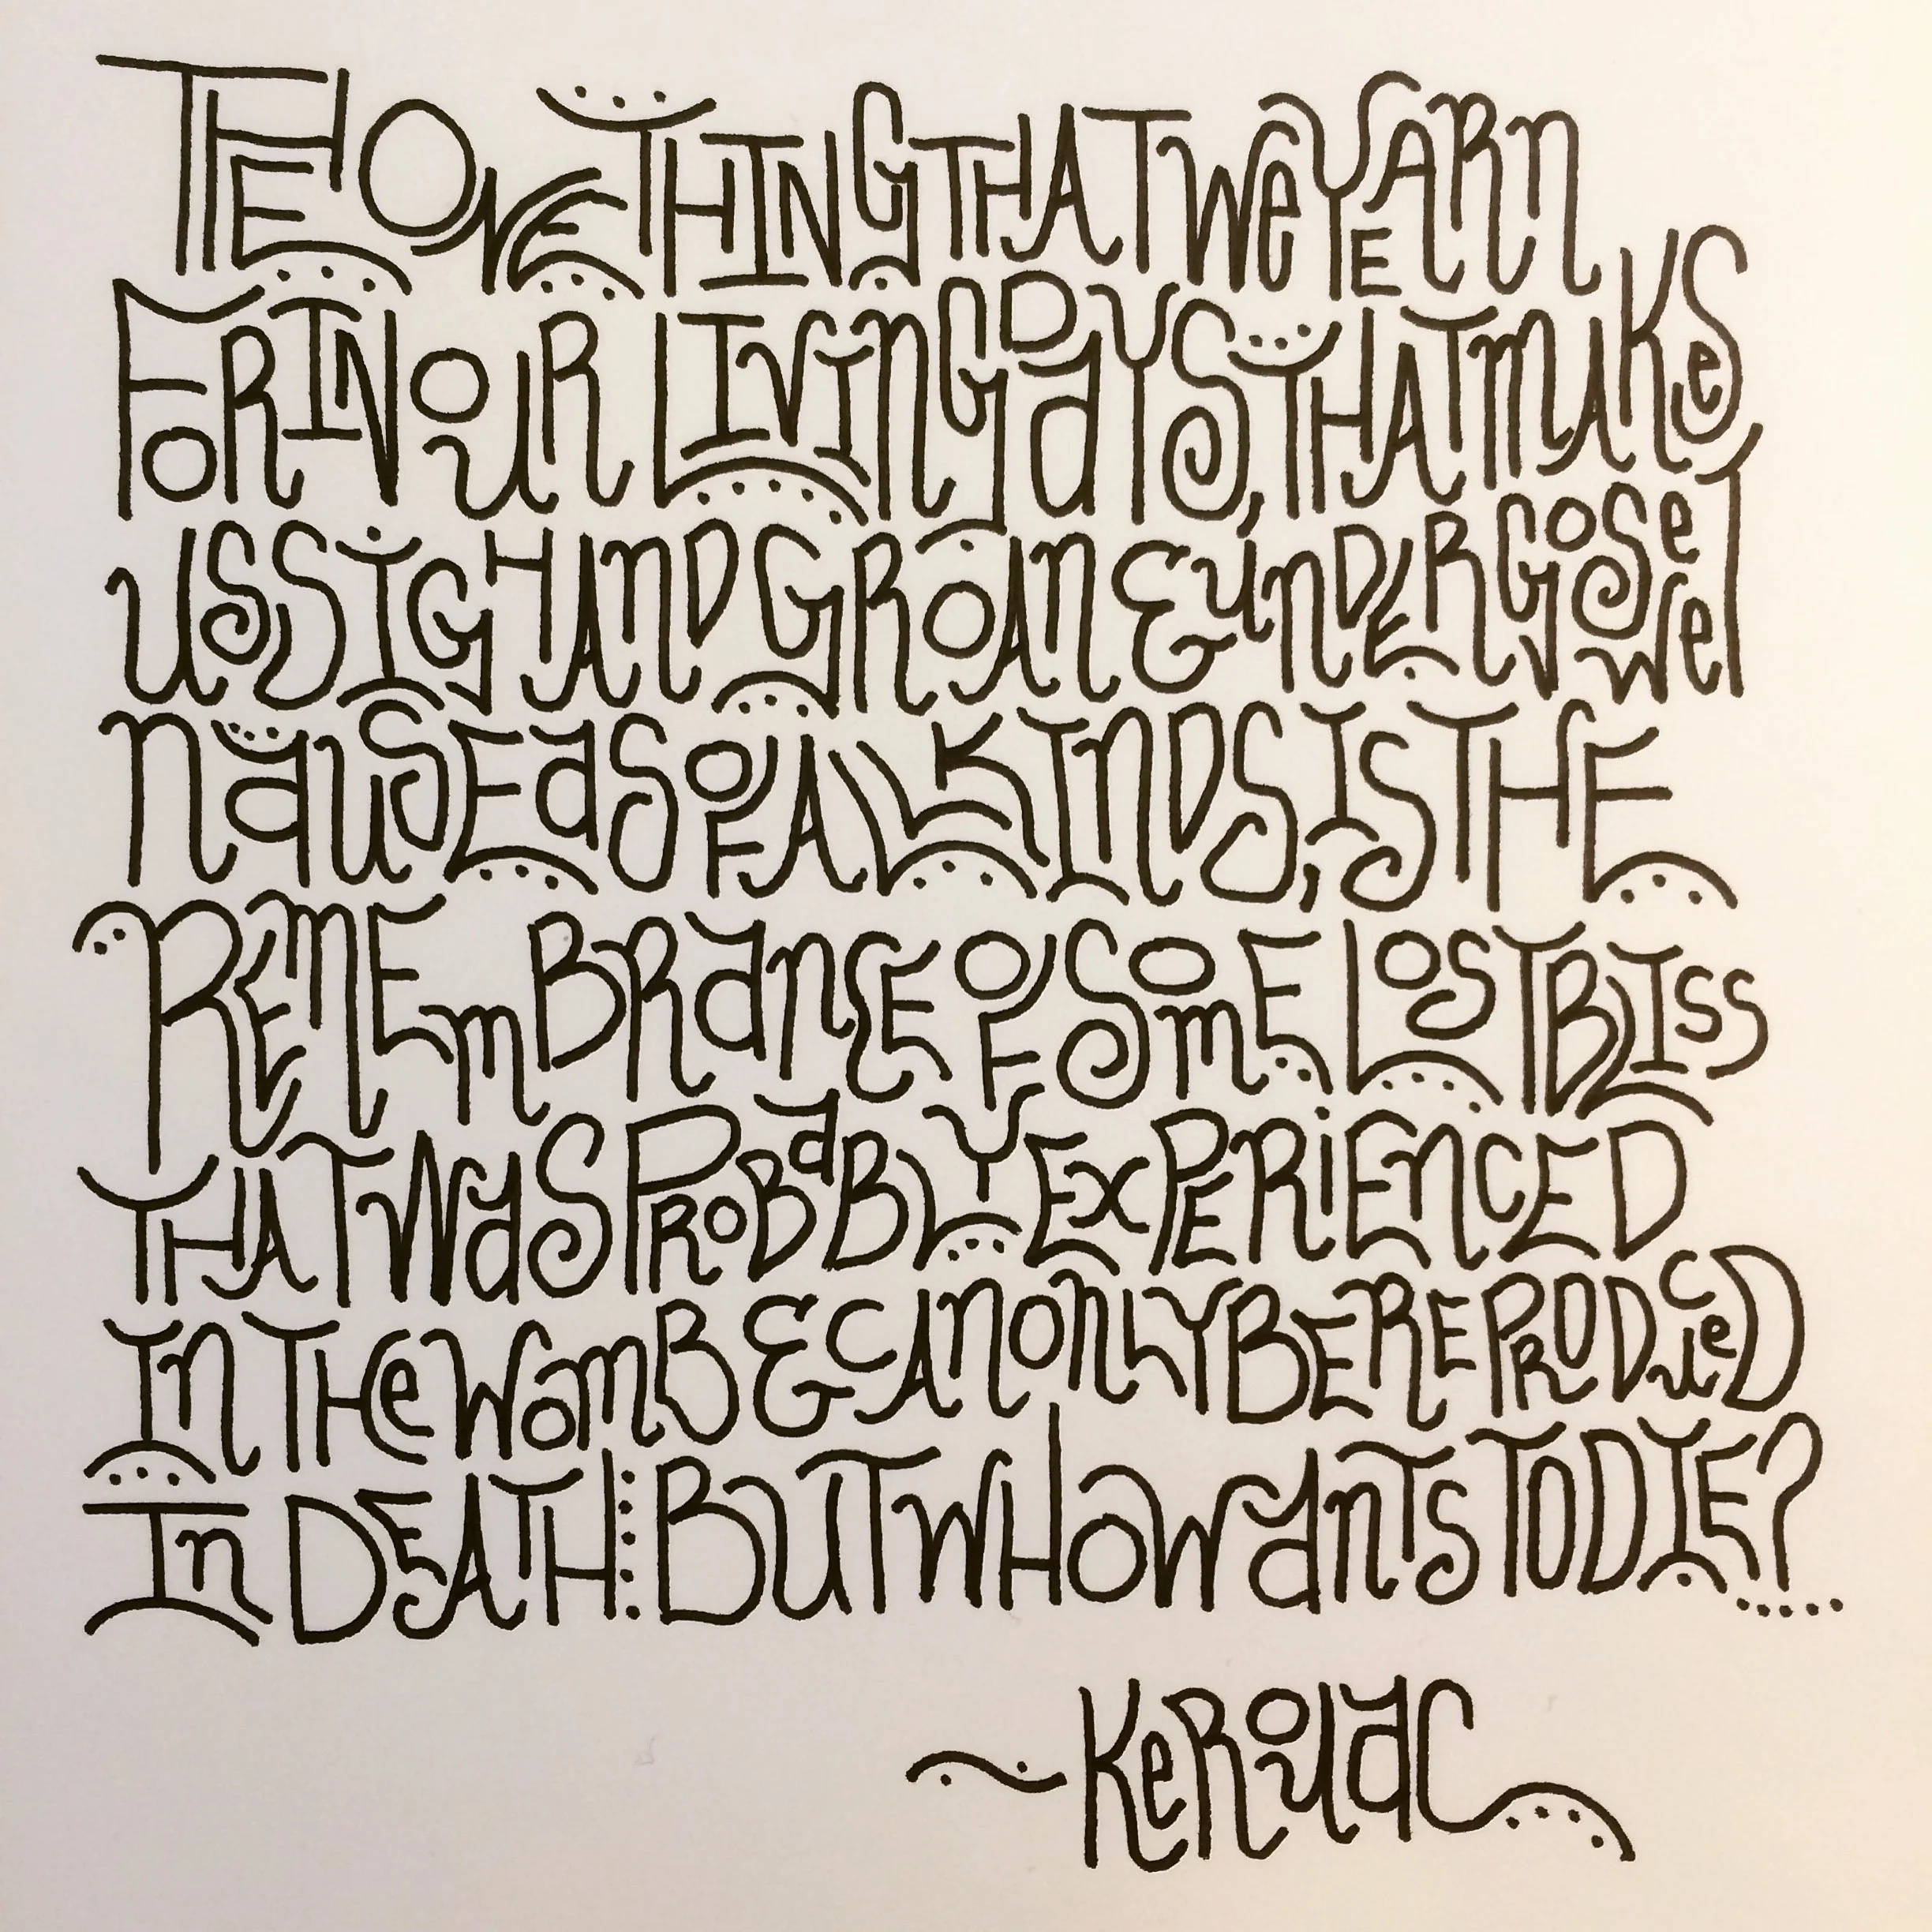 THE ONE THING THAT WE YEARN
FOR IN OUR LIVING DAYS, THAT MAKES
US SIGH AND GROAN & UNDERGO SWEET
NAUSEAS OF ALL KINDS, IS THE
REMEMBRANCE OF SOME LOST BLISS
THAT WAS PROBABLY EXPERIENCED
IN THE WOMB & CAN ONLY BE REPRODUCED
IN DEATH: BUT WHO WANTS TO DIE?.....
~KEROUAC